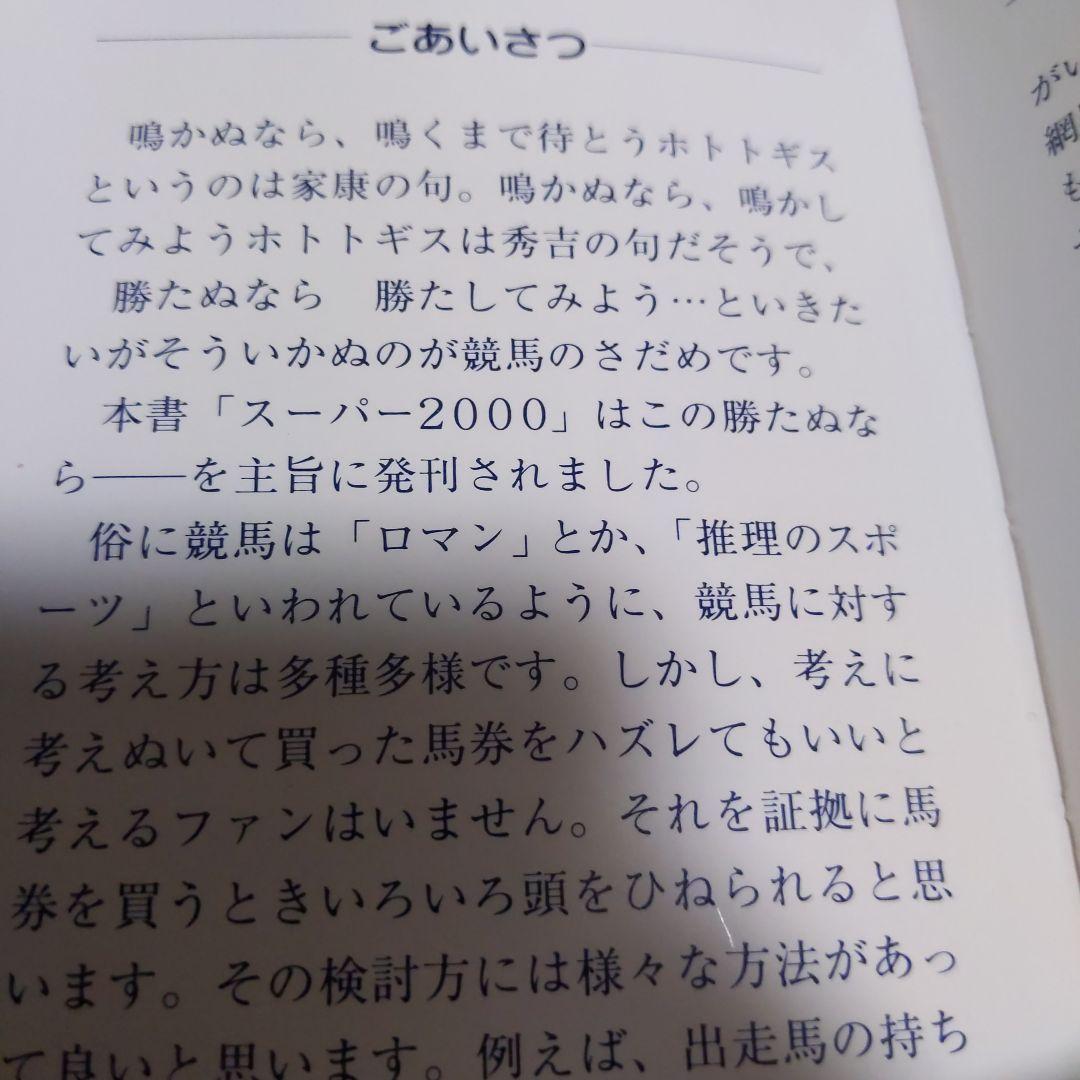 ごあいさつ
鳴かぬなら、鳴くまで待とうホトトギス
というのは家康の句。鳴かぬなら、鳴かし
てみようホトトギスは秀吉の句だそうで、
勝たぬなら　勝たしてみよう…といきた
いがそういかぬのが競馬のさだめです。
本書「スーパー2000」はこの勝たぬな
ら──を主旨に発刊されました。
俗に競馬は「ロマン」とか、「推理のスポ
ーツ」といわれているように、競馬に対す
る考え方は多種多様です。しかし、考えに
考えぬいて買った馬券をハズレてもいいと
考えるファンはいません。それを証拠に馬
券を買うときいろいろ頭をひねられると思
います。その検討方には様々な方法があっ
て良いと思います。例えば、出走馬の持ち
がい
網
も